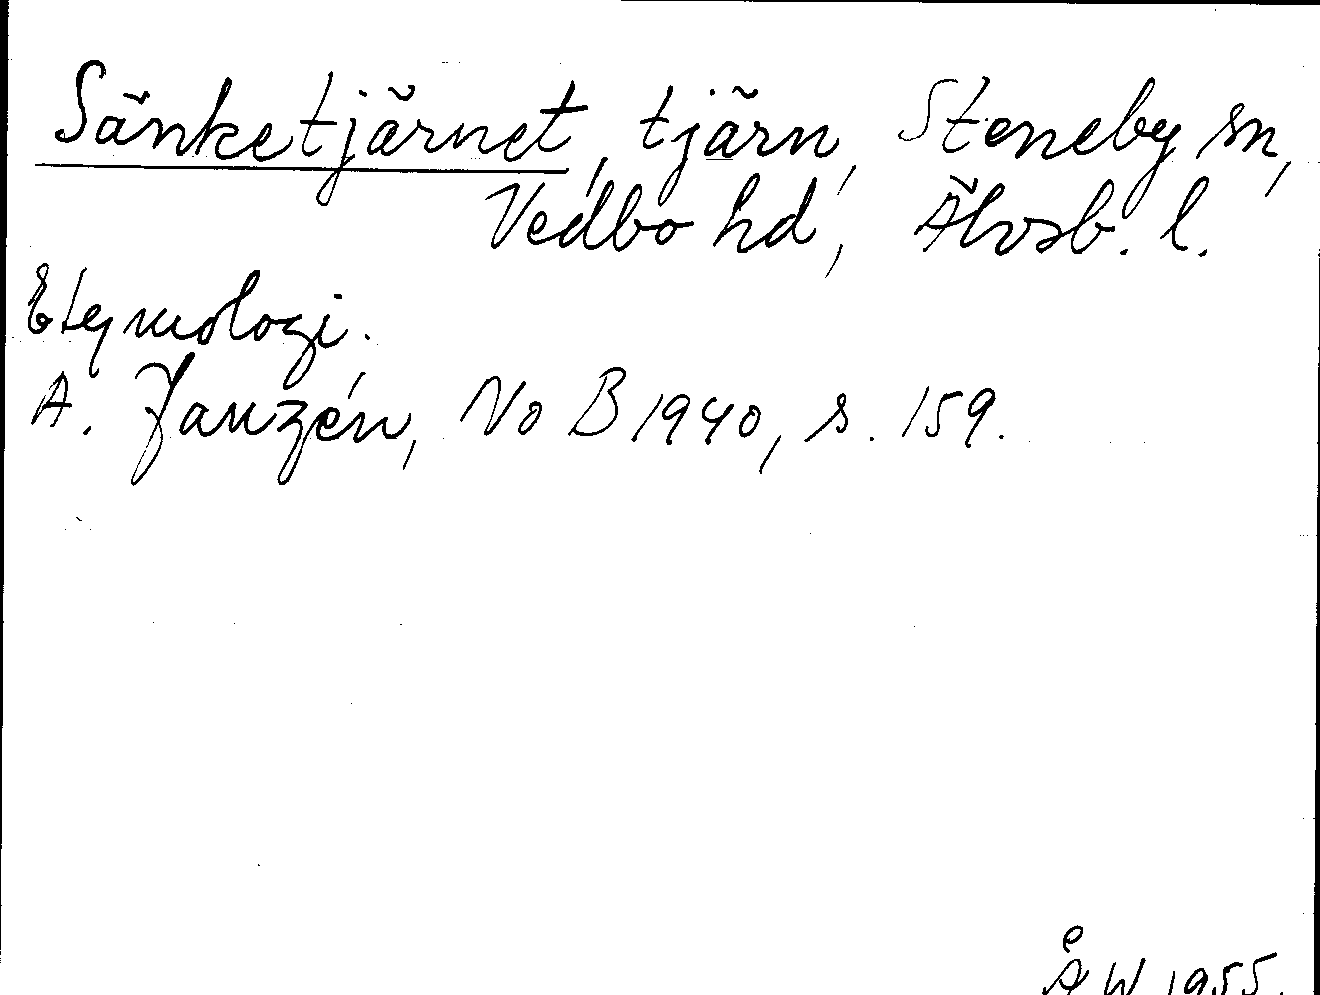 Sänketjärnet, tjärn, Steneby sn,
Vedbo hd, Älvsb. l.
Etymologi.
A. Janzén, NoB 1940, s. 159.
ÅW 1955.